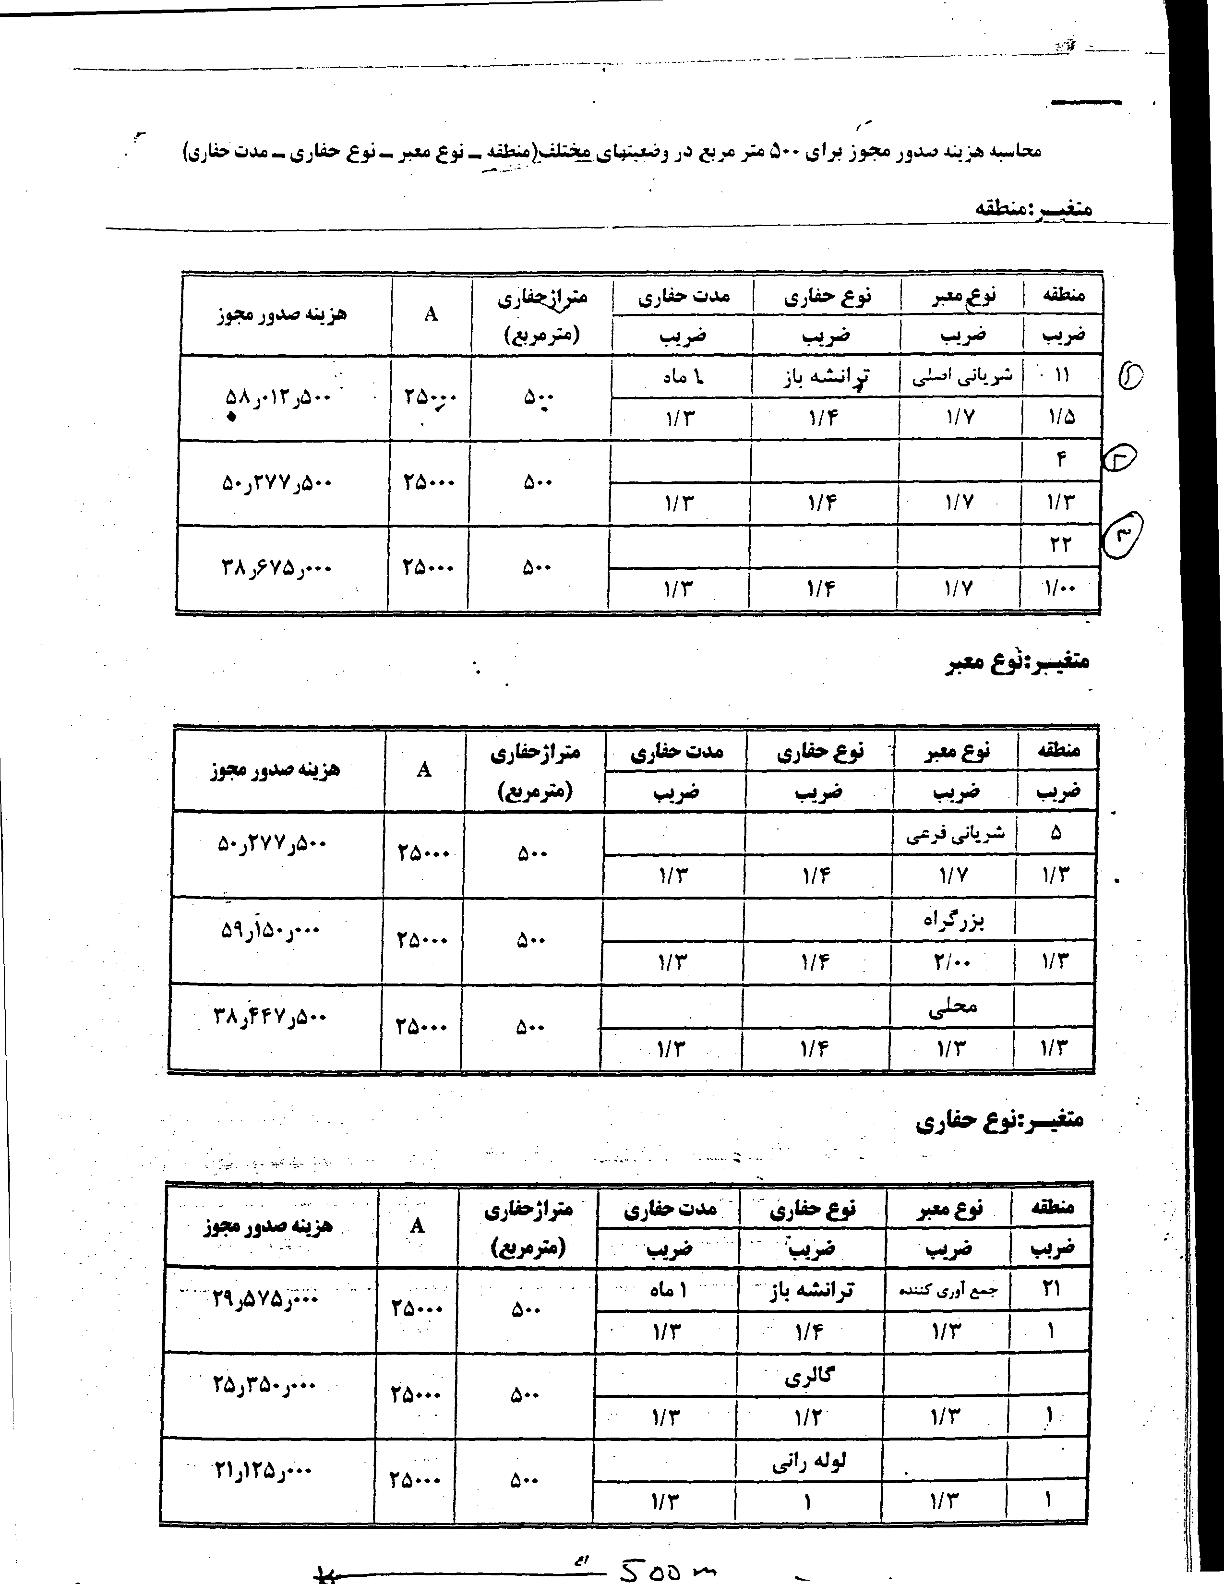 محاسبه هزینه صدور مجوز برای ۵۰۰ متر مربع در وضعیتهای مختلف(منطقه ـ نوع معبر ـ نوع حفاری ـ مدت حفاری)
متغیـر:منطقه
منطقه نوع معبر نوع حفاری مدت حفاری متراژحفاری (مترمربع) A هزینه صدور مجوز
ضریب ضریب ضریب ضریب
۱۱ شریانی اصلی ترانشه باز ۱ ماه ۵۰۰ ۲۵۰۰۰ ۵۸ر۰۱۲ر۵۰۰
۱/۵ ۱/۷ ۱/۴ ۱/۳
۴ ۵۰۰ ۲۵۰۰۰ ۵۰ر۲۷۷ر۵۰۰
۱/۳ ۱/۷ ۱/۴ ۱/۳
۲۲ ۵۰۰ ۲۵۰۰۰ ۳۸ر۶۷۵ر۰۰۰
۱/۰۰ ۱/۷ ۱/۴ ۱/۳
۲
۳
متغیـر:نوع معبر
منطقه نوع معبر نوع حفاری مدت حفاری متراژحفاری (مترمربع) A هزینه صدور مجوز
ضریب ضریب ضریب ضریب
۵ شریانی فرعی ۵۰۰ ۲۵۰۰۰ ۵۰ر۲۷۷ر۵۰۰
۱/۳ ۱/۷ ۱/۴ ۱/۳
بزرگراه ۵۰۰ ۲۵۰۰۰ ۵۹ر۱۵۰ر۰۰۰
۱/۳ ۲/۰۰ ۱/۴ ۱/۳
محلی ۵۰۰ ۲۵۰۰۰ ۳۸ر۴۴۷ر۵۰۰
۱/۳ ۱/۳ ۱/۴ ۱/۳
متغیـر:نوع حفاری
منطقه نوع معبر نوع حفاری مدت حفاری متراژحفاری (مترمربع) A هزینه صدور مجوز
ضریب ضریب ضریب ضریب
۲۱ جمع آوری کننده ترانشه باز ۱ ماه ۵۰۰ ۲۵۰۰۰ ۲۹ر۵۷۵ر۰۰۰
۱ ۱/۳ ۱/۴ ۱/۳
گالری ۵۰۰ ۲۵۰۰۰ ۲۵ر۳۵۰ر۰۰۰
۱ ۱/۳ ۱/۲ ۱/۳
لوله رانی ۵۰۰ ۲۵۰۰۰ ۲۱ر۱۲۵ر۰۰۰
۱ ۱/۳ ۱ ۱/۳
500 m